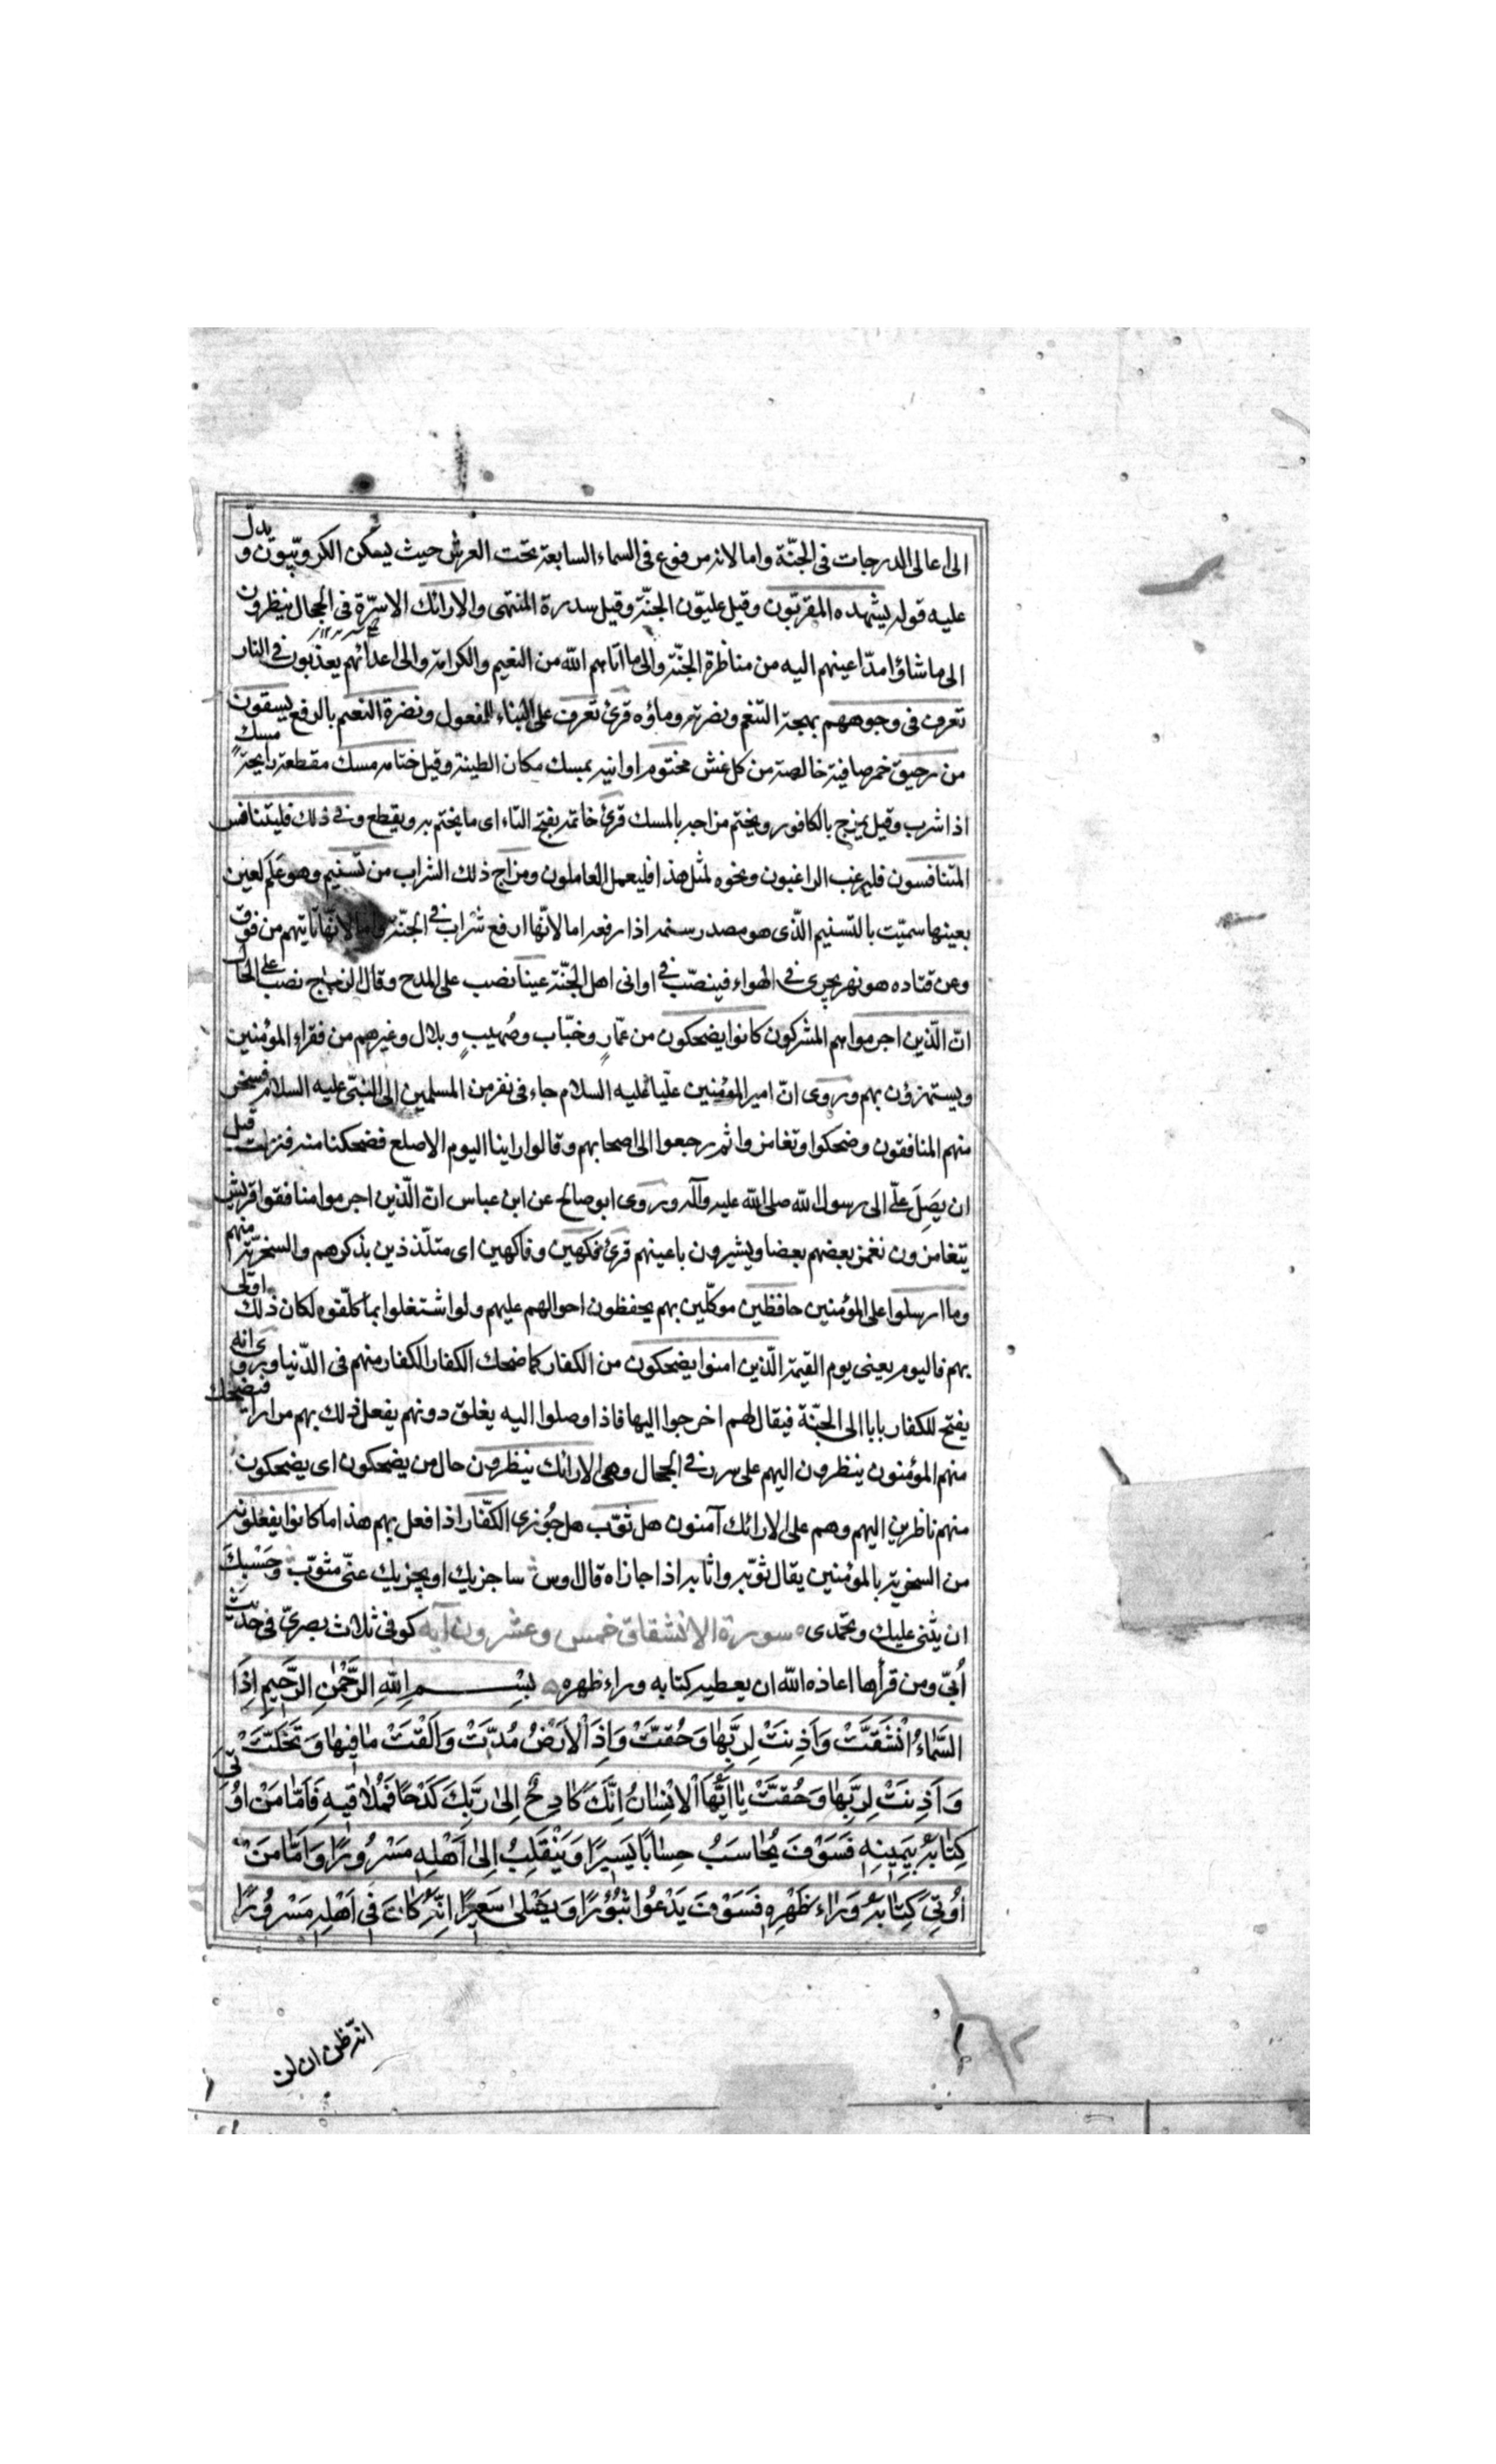 الى اعالى الدرجات فى الجنّة واما لانه مرفوع فى السماء السابعة تحت العرش حيث يسكن الكروبّيون و يدلّ
عليه قوله يشهده المقرّبون وقيل عليّون الجنّة وقيل سدرة المنتهى والارائك الاسرّة فى الحجال ينظرون
الى ما شاؤا مدّ اعينهم اليه من مناظرة الجنّة والى ما اتاهم الله من النعيم والكرامة والى اعدائهم يعذّبون فى النار
تعرف فى وجوههم بهجة التنعّم ونضرته وماؤه قرئ تعرف على البناء للمفعول ونضرة النعيم بالرفع يسقون
من رحيق خمر صافية خالصة من كل غش مختوم اوانيه بمسك مكان الطينة وقيل ختامه مسك مقطعه رايحة مسك
اذا شرب وقيل يمزج بالكافور ويختم مزاجه بالمسك قرئ خاتمه بفتح التاء اى ما يختم به ويقطع وفى ذلك فليتنافس
المتنافسون فليرغب الراغبون ونحوه لمثل هذا فليعمل العاملون ومزاج ذلك الشراب من تسنيم وهو علم لعين
بعينها سمّيت بالتسنيم الّذى هو مصدر سنمه اذا رفعه اما لانّها ارفع شراب فى الجنّة واما لانّها تاتيهم من فوق
وعن قتاده هو نهر يجرى فى الهواء فينصّب فى اوانى اهل الجنّة عينا نصب على المدح وقال الزجاج نصب على الحال
انّ الّذين اجرموا هم المشركون كانوا يضحكون من عمّارٍ وخبّاب وصُهيبٍ وبلال وغيرهم من فقراء المؤمنين
ويستهزؤن بهم وروى انّ امير المؤمنين عليّا عليه السلام جاء فى نفر من المسلمين الى النبّى عليه السلام فسخر
منهم المنافقون وضحكوا وتغامزوا ثم رجعوا الى اصحابهم وقالوا راينا اليوم الاصلع فضحكنا منه فنزلت قبل
ان يَصِلَ علّى الى رسول الله صلى الله عليه وآله وروى ابو صالح عن ابن عباس انّ الّذين اجرموا منافقوا قريش
يتغامزون نغمز بعضهم بعضا ويشيرون باعينهم قرئ فكهين وفاكهين اى متلّذذين بذكرهم والسخرّية منهم
وما ارسلوا على المؤمنين حافظين موكّلين بهم يحفظون احوالهم عليهم ولو اشتغلوا بما كلّفوه لكان ذلك اولى
بهم فاليوم يعنى يوم القيمة الّذين امنوا يضحكون من الكفار كما ضحك الكفار الكفار منهم فى الدّنيا وروى انه
يفتح للكفار بابا الى الجنّة فيقال لهم اخرجوا اليها فاذا وصلوا اليه يغلق دونهم يفعل ذلك بهم مرارا فيضحك
منهم المؤمنون ينظرون اليهم على سرر فى الحجال وهى الارائك ينظرون حال من يضحكون اى يضحكون
منهم ناظرين اليهم وهم على الارائك آمنون هل ثوّب هل جُوزى الكفّار اذا فعل بهم هذا ما كانوا يفعلونه
من السخرية بالمؤمنين يقال ثوّبه واثابه اذا جازاه قال اوس ساجزيك او يجزيك عنّى مثوّب وحَسْبكَ
ان يثنى عليك وتحمدى سورة الانشقاق خمس وعشرون آية كوفى ثلاث بصرىّ فى حديث
اُبىّ ومن قرأها اعاذه الله ان يعطيه كتابه وراء ظهره بِسْمِ اللهِ الرَّحْمٰنِ الرَّحيمِ اِذَا
السَّمَاءُ انْشَقَّتْ وَاَذِنَتْ لِرَبِّهٰا وَحُقَّتْ وَاِذَا الْاَرْضُ مُدَّتْ وَاَلْقَتْ مٰا فِيهٰا وَتَخَلَّتْ
وَاَذِنَتْ لِرَبِّهٰا وَحُقَّتْ يٰا اَيُّهَا الْاِنْسٰانُ اِنَّكَ كٰادِحٌ اِلىٰ رَبِّكَ كَدْحًا فَمُلاٰقيهِ فَاَمّٰا مَنْ اُوتِىَ
كِتٰابَهُ بِيَمِينِهِ فَسَوْفَ يُحٰاسَبُ حِسٰابًا يَسيرًا وَيَنْقَلِبُ اِلىٰ اَهْلِهِ مَسْرُورًا وَاَمّٰا مَنْ
اُوتِىَ كِتٰابَهُ وَرٰاءَ ظَهْرِهِ فَسَوْفَ يَدْعُوا ثُبُورًا وَيَصْلىٰ سَعيرًا اِنَّهُ كٰانَ فى اَهْلِهِ مَسْرُورًا
انّه ظن ان لن